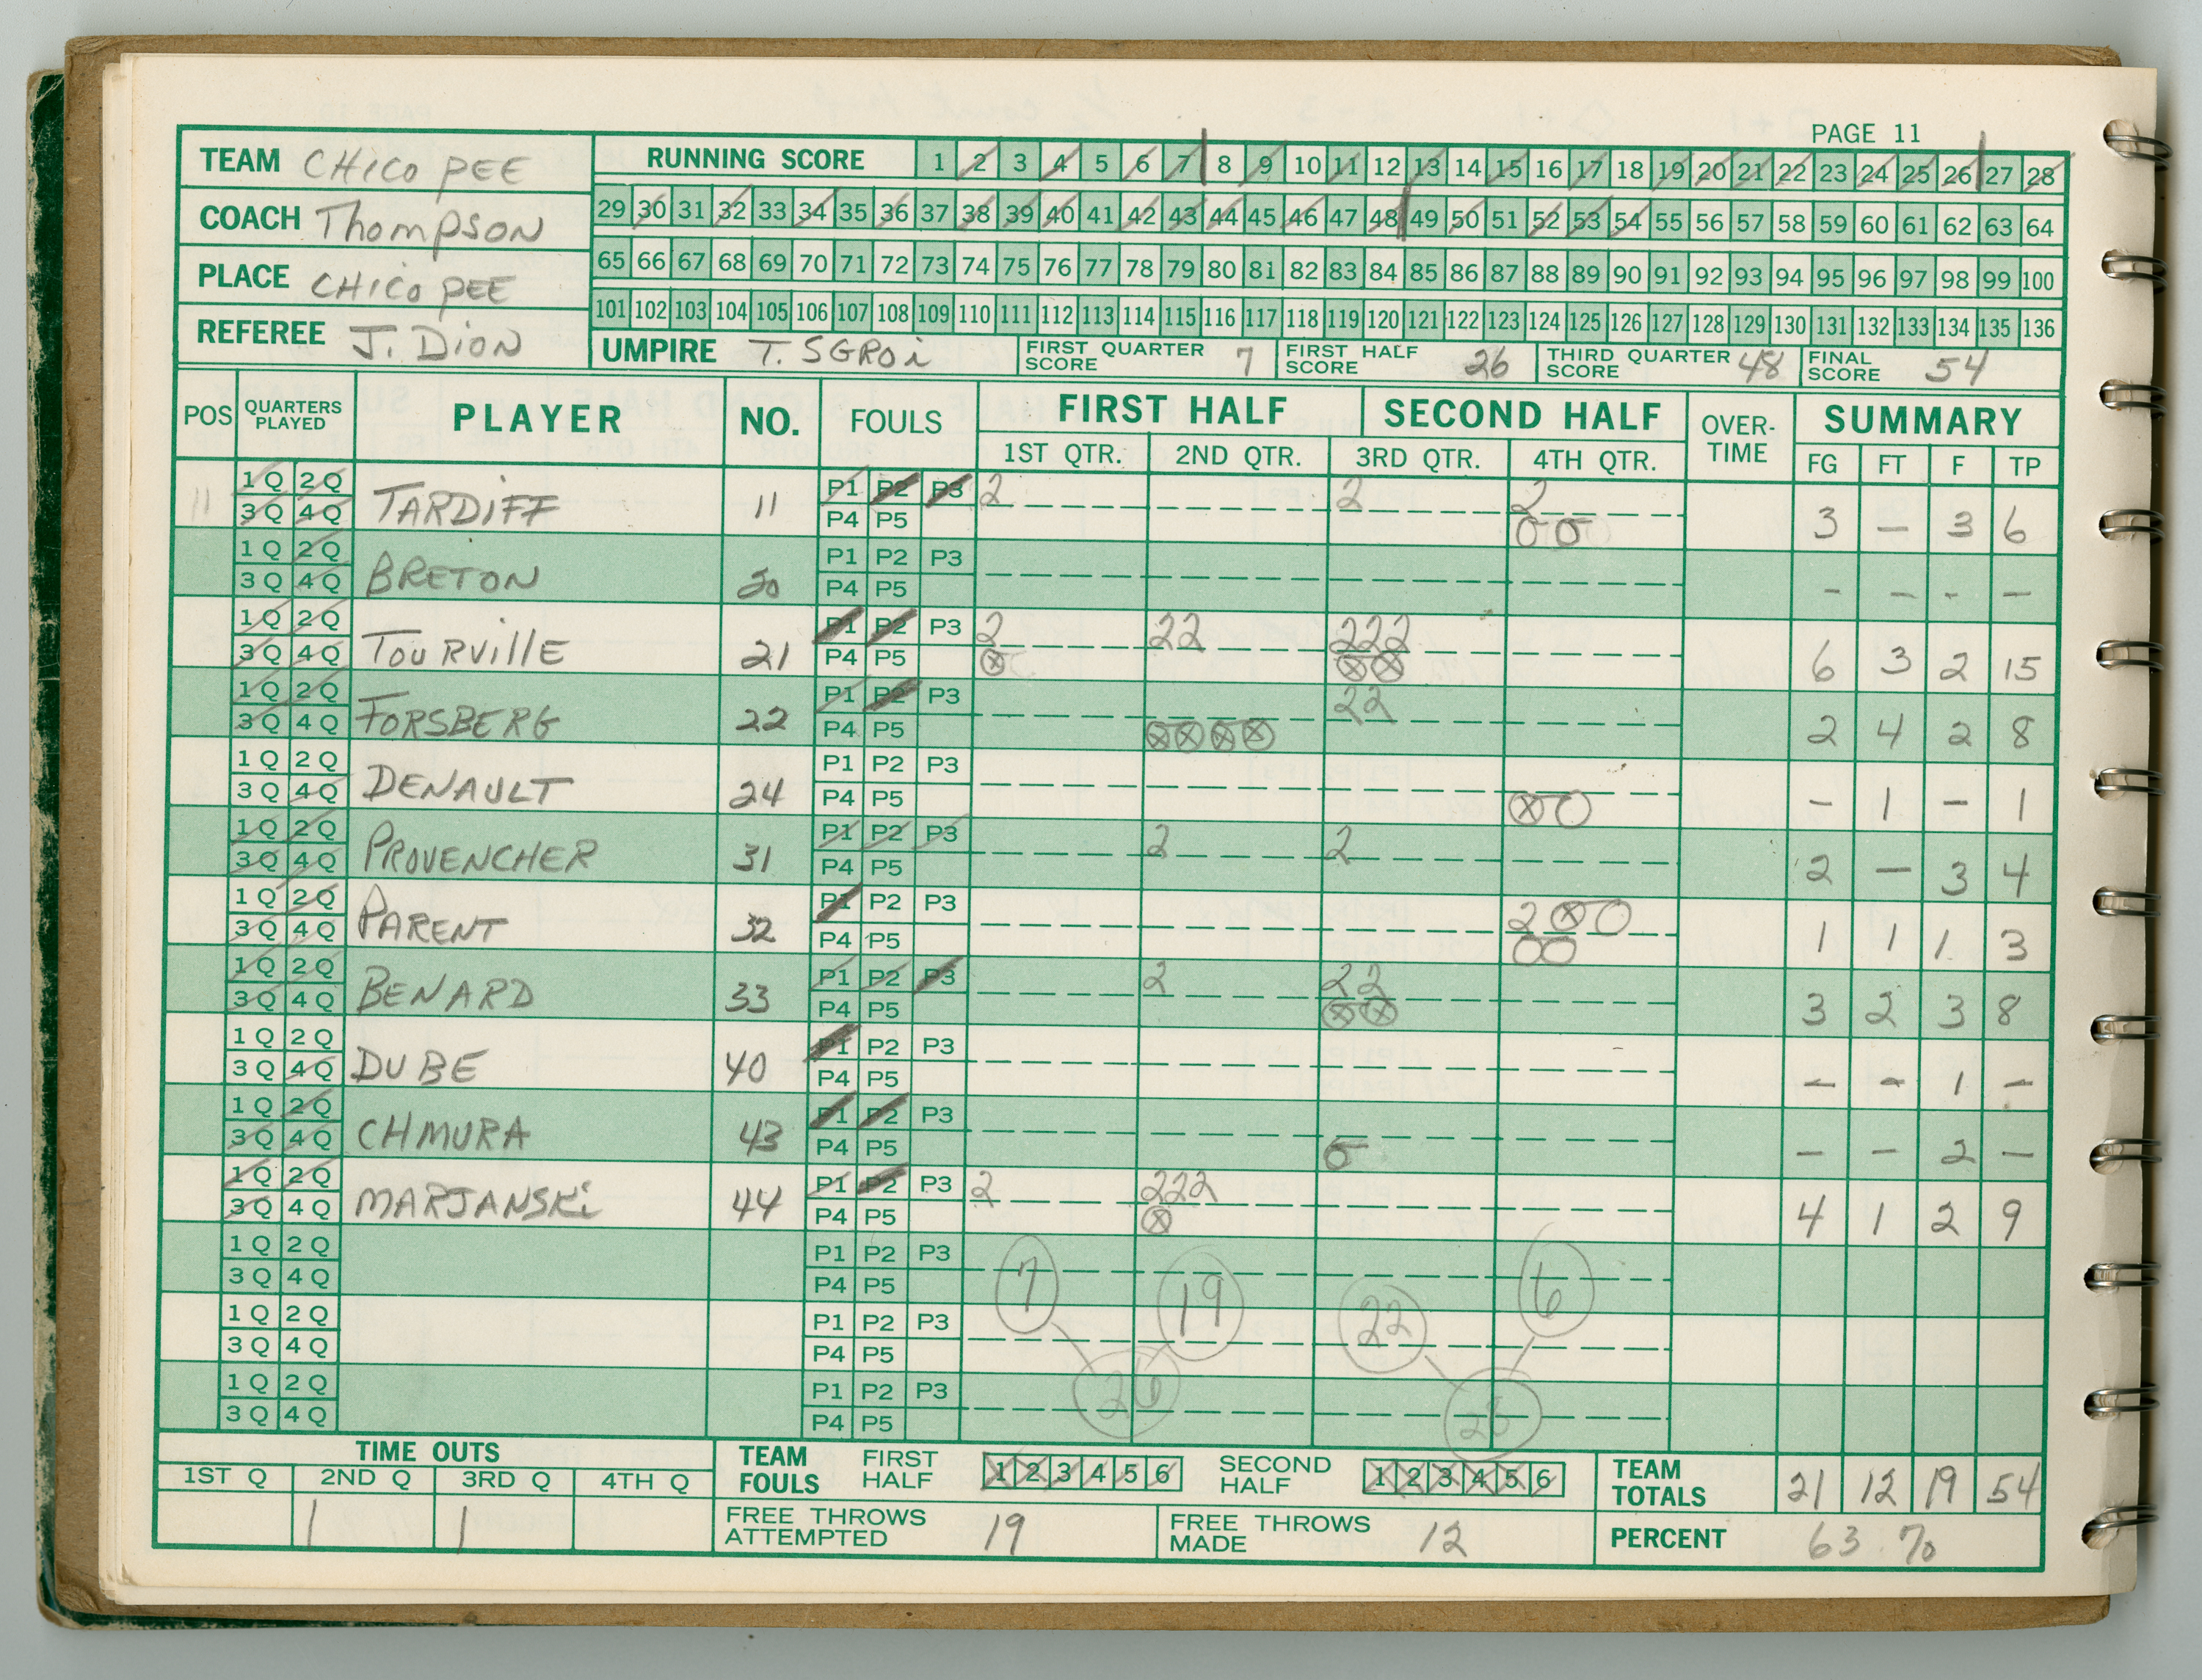 PAGE 11
TEAM CHICOPEE
RUNNING SCORE 1 2 3 4 5 6 7 8 9 10 11 12 13 14 15 16 17 18 19 20 21 22 23 24 25 26 27 28
COACH Thompson
29 30 31 32 33 34 35 36 37 38 39 40 41 42 43 44 45 46 47 48 49 50 51 52 53 54 55 56 57 58 59 60 61 62 63 64
PLACE CHICOPEE
65 66 67 68 69 70 71 72 73 74 75 76 77 78 79 80 81 82 83 84 85 86 87 88 89 90 91 92 93 94 95 96 97 98 99 100
101 102 103 104 105 106 107 108 109 110 111 112 113 114 115 116 117 118 119 120 121 122 123 124 125 126 127 128 129 130 131 132 133 134 135 136
REFEREE J. DION
UMPIRE T. SGROi
FIRST QUARTER SCORE 7
FIRST HALF SCORE 26
THIRD QUARTER SCORE 48
FINAL SCORE 54
POS QUARTERS PLAYED PLAYER NO. FOULS FIRST HALF SECOND HALF OVER-TIME SUMMARY
1ST QTR. 2ND QTR. 3RD QTR. 4TH QTR. FG FT F TP
11 1Q 2Q TARDIFF 11 P1 P2 P3 2 2 2 3 — 3 6
3Q 4Q P4 P5 O O
1Q 2Q BRETON 20 P1 P2 P3 - - - —
3Q 4Q P4 P5
1Q 2Q TOURVILLE 21 P1 P2 P3 2 22 222 6 3 2 15
3Q 4Q P4 P5 ⊗ ⊗⊗
1Q 2Q FORSBERG 22 P1 P2 P3 22 2 4 2 8
3Q 4Q P4 P5 ⊗⊗⊗⊗
1Q 2Q DENAULT 24 P1 P2 P3 - 1 - 1
3Q 4Q P4 P5 ⊗O
1Q 2Q PROVENCHER 31 P1 P2 P3 2 2 2 — 3 4
3Q 4Q P4 P5
1Q 2Q PARENT 32 P1 P2 P3 2⊗O 1 1 1 3
3Q 4Q P4 P5 OO
1Q 2Q BENARD 33 P1 P2 P3 2 22 3 2 3 8
3Q 4Q P4 P5 ⊗⊗
1Q 2Q DUBE 40 P1 P2 P3 - - 1 -
3Q 4Q P4 P5
1Q 2Q CHMURA 43 P1 P2 P3 - - 2 —
3Q 4Q P4 P5 O
1Q 2Q MARJANSKi 44 P1 P2 P3 2 222 4 1 2 9
3Q 4Q P4 P5 ⊗
1Q 2Q P1 P2 P3
3Q 4Q P4 P5
7 19 22 6
1Q 2Q P1 P2 P3
3Q 4Q P4 P5
26 28
1Q 2Q P1 P2 P3
3Q 4Q P4 P5
TIME OUTS
1ST Q 2ND Q 3RD Q 4TH Q
1 1
TEAM FOULS FIRST HALF 1 2 3 4 5 6 SECOND HALF 1 2 3 4 5 6
TEAM TOTALS 21 12 19 54
FREE THROWS ATTEMPTED 19
FREE THROWS MADE 12
PERCENT 63 %